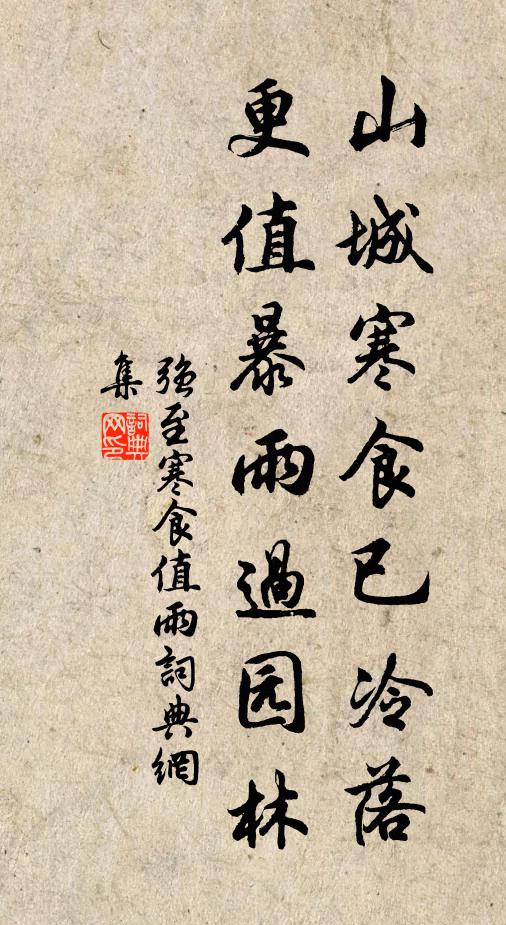 山城寒食已冷落
更值暴雨過园林
强至寒食值雨詞典網
集
詞典
网印